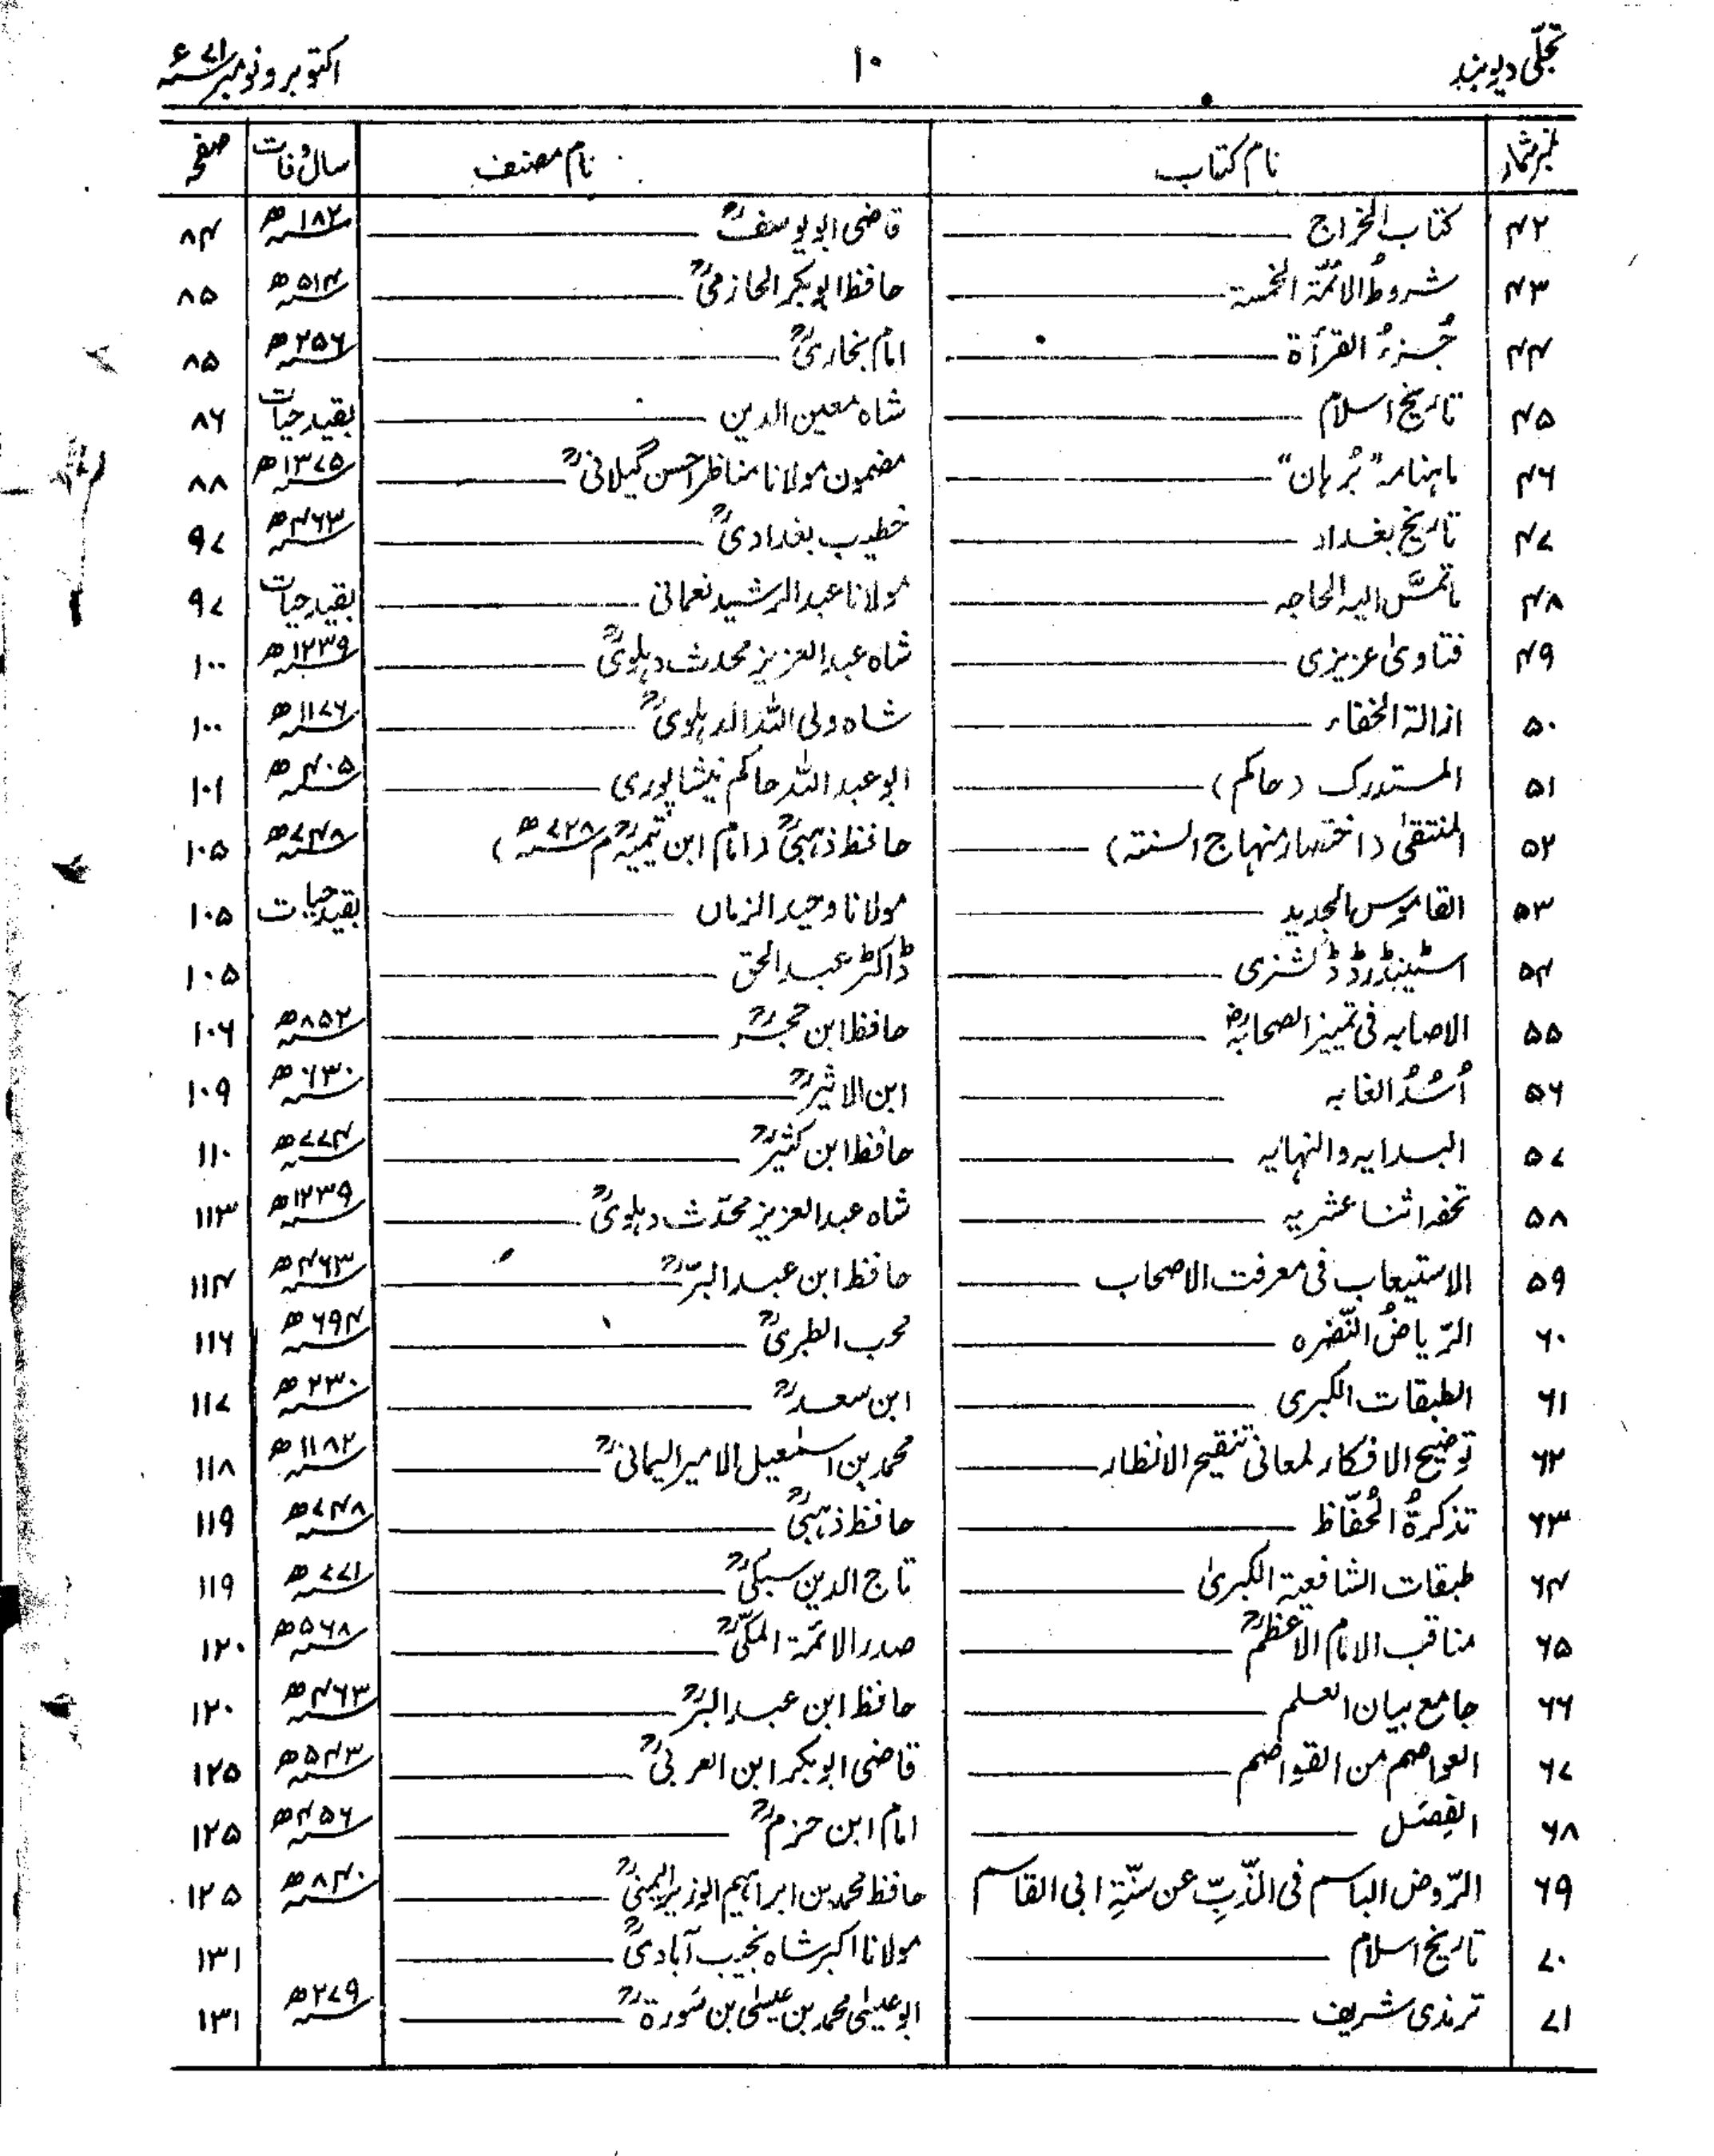 تجلّی دیوبند ۱۰ اکتوبر و نومبر ۷۱ء
نمبر شمار نام کتاب نام مصنف سال وفات صفحہ
۴۲ کتاب الخراج قاضی ابو یوسفؒ ۱۸۲ھ ۸۴
۴۳ شروطُ الائمّۃ الخمسۃ حافظ ابوبکر الحازمیؒ ۵۱۴ھ ۸۵
۴۴ جُزءُ القرأۃ امام بخاریؒ ۲۵۶ھ ۸۵
۴۵ تاریخ اسلام شاہ معین الدین بقید حیات ۸۶
۴۶ ماہنامہ "بُرہان" مضمون مولانا مناظر احسن گیلانیؒ ۱۳۷۵ھ ۸۸
۴۷ تاریخ بغداد خطیب بغدادیؒ ۴۶۳ھ ۹۷
۴۸ ماتمسُّ الیہ الحاجہ مولانا عبدالرشید نعمانی بقید حیات ۹۷
۴۹ فتاویٰ عزیزی شاہ عبدالعزیز محدث دہلویؒ ۱۲۳۹ھ ۱۰۰
۵۰ ازالۃ الخفاء شاہ ولی اللہ الدہلویؒ ۱۱۷۶ھ ۱۰۰
۵۱ المستدرک (حاکم) ابو عبد اللہ حاکم نیشاپوری ۴۰۵ھ ۱۰۱
۵۲ المنتقیٰ (اختصار منہاج السنتہ) حافظ ذہبیؒ (امام ابن تیمیہؒ م ۷۲۸ھ) ۷۴۸ھ ۱۰۵
۵۳ القاموس الجدید مولانا وحید الزماں بقید حیات ۱۰۵
۵۴ اسٹینڈرڈ ڈکشنری ڈاکٹر عبدالحق ۱۰۵
۵۵ الاصابہ فی تمییز الصحابہؓ حافظ ابن حجرؒ ۸۵۲ھ ۱۰۶
۵۶ اُسُدُ الغابہ ابن الاثیرؒ ۶۳۰ھ ۱۰۹
۵۷ البدایہ والنہایہ حافظ ابن کثیرؒ ۷۷۴ھ ۱۱۰
۵۸ تحفہ اثنا عشریہ شاہ عبدالعزیز محدّث دہلویؒ ۱۲۳۹ھ ۱۱۳
۵۹ الاستیعاب فی معرفت الاصحاب حافظ ابن عبدالبرّؒ ۴۶۳ھ ۱۱۴
۶۰ الرّیاضُ النّضرہ محب الطبریؒ ۶۹۴ھ ۱۱۶
۶۱ الطبقات الکبری ابن سعدؒ ۲۳۰ھ ۱۱۷
۶۲ توضیح الافکار لمعانی تنقیح الانظار محمد بن اسمٰعیل الامیر الیمانیؒ ۱۱۸۲ھ ۱۱۸
۶۳ تذکرۃُ الحُفّاظ حافظ ذہبیؒ ۷۴۸ھ ۱۱۹
۶۴ طبقات الشافعیۃ الکبریٰ تاج الدین سبکیؒ ۷۷۱ھ ۱۱۹
۶۵ مناقب الامام الاعظمؒ صدر الائمّۃ المکّیؒ ۵۶۸ھ ۱۲۰
۶۶ جامع بیان العلم حافظ ابن عبدالبرؒ ۴۶۳ھ ۱۲۰
۶۷ العواصم من القواصم قاضی ابوبکر ابن العربیؒ ۵۴۳ھ ۱۲۵
۶۸ الفِصَل امام ابن حزمؒ ۴۵۶ھ ۱۲۵
۶۹ الرّوض الباسم فی الذّبِّ عن سنّۃِ ابی القاسم حافظ محمد بن ابراہیم الوزیر الیمنیؒ ۸۴۰ھ ۱۲۵
۷۰ تاریخ اسلام مولانا اکبر شاہ نجیب آبادیؒ ۱۳۱
۷۱ ترمذی شریف ابو عیسٰی محمد بن عیسٰی بن سَورۃؒ ۲۷۹ھ ۱۳۱